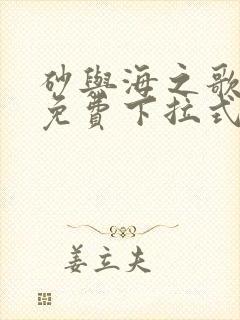 砂與海之歌
免費下拉式
姜立夫